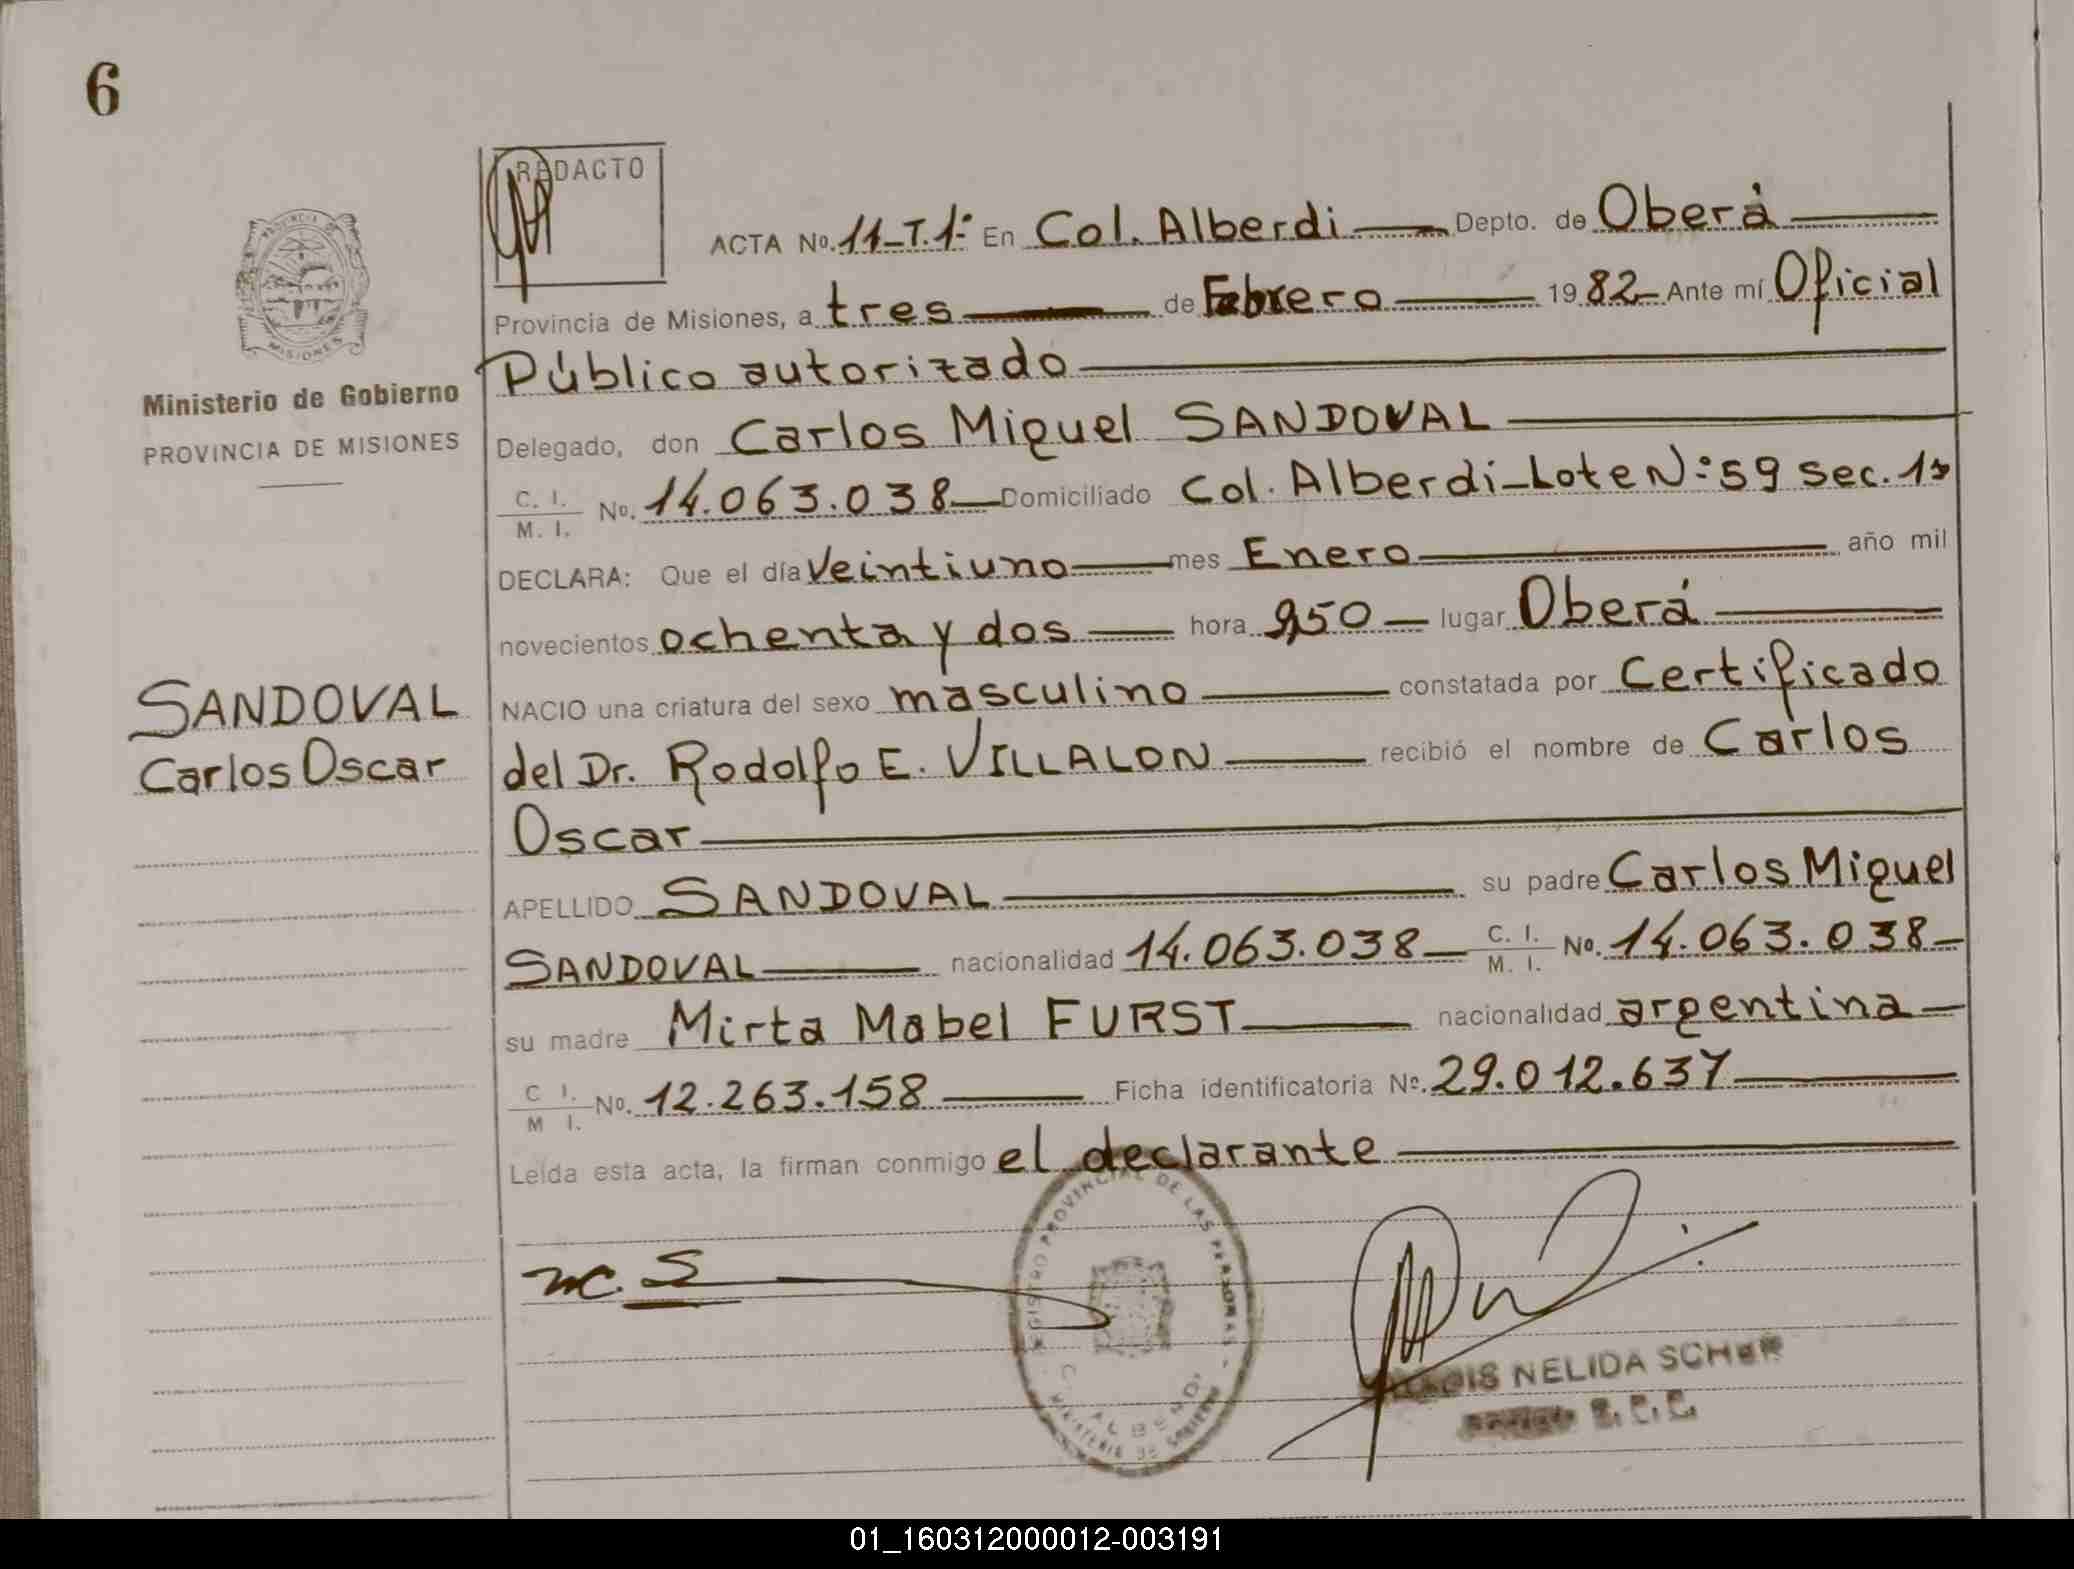 6
REDACTO
PROVINCIA DE
MISIONES
Ministerio de Gobierno
PROVINCIA DE MISIONES
ACTA No. 11-T.1º En Col. Alberdi Depto. de Oberá
Provincia de Misiones, a tres de Febrero 1982 Ante mí Oficial
Público autorizado
Delegado, don Carlos Miguel SANDOVAL
C. I. / M. I. No. 14.063.038 Domiciliado Col. Alberdi-Lote Nº 59 sec. 1ª
DECLARA: Que el día veintiuno mes Enero año mil
novecientos ochenta y dos hora 9,50 lugar Oberá
NACIO una criatura del sexo masculino constatada por Certificado
SANDOVAL
Carlos Oscar
del Dr. Rodolfo E. VILLALON recibió el nombre de Carlos
Oscar
APELLIDO SANDOVAL su padre Carlos Miguel
SANDOVAL nacionalidad 14.063.038 C. I. / M. I. No. 14.063.038
su madre Mirta Mabel FURST nacionalidad argentina
C I. / M I. No. 12.263.158 Ficha identificatoria No. 29.012.637
Leída esta acta, la firman conmigo el declarante
REGISTRO PROVINCIAL DE LAS PERSONAS
MINISTERIO DE GOBIERNO
mc. S
NELIDA
01_160312000012-003191